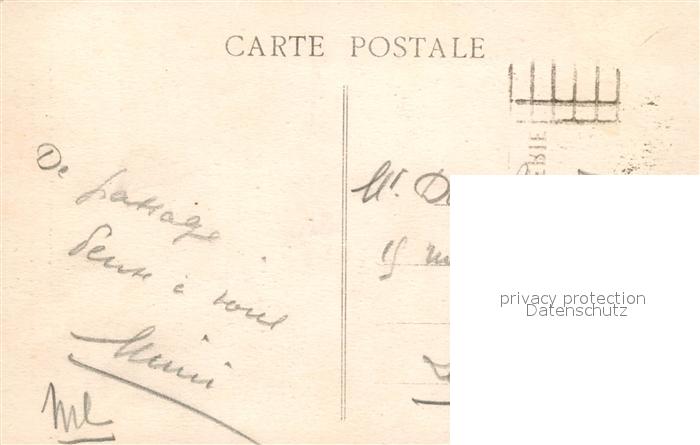 CARTE POSTALE
De passage
Pense à vous
Mimi
Mr. D
15
privacy protection
Datenschutz